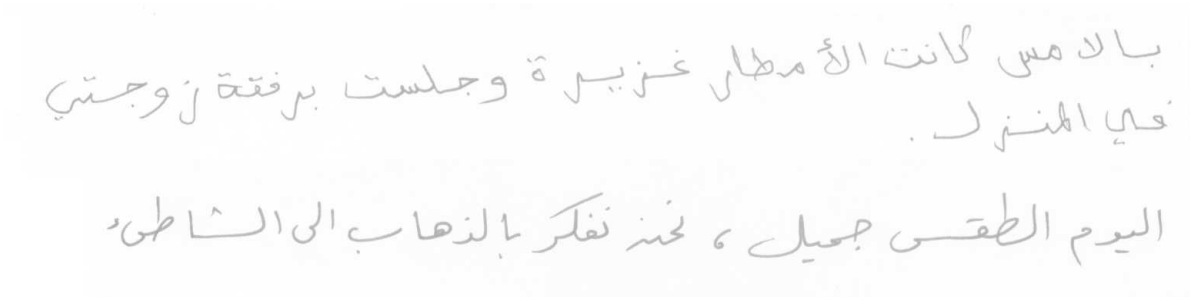 بالامس كانت الأمطار غزيرة وجلست برفقة زوجتي
في المنزل.
اليوم الطقس جميل، نحن نفكر بالذهاب الى الشاطىء